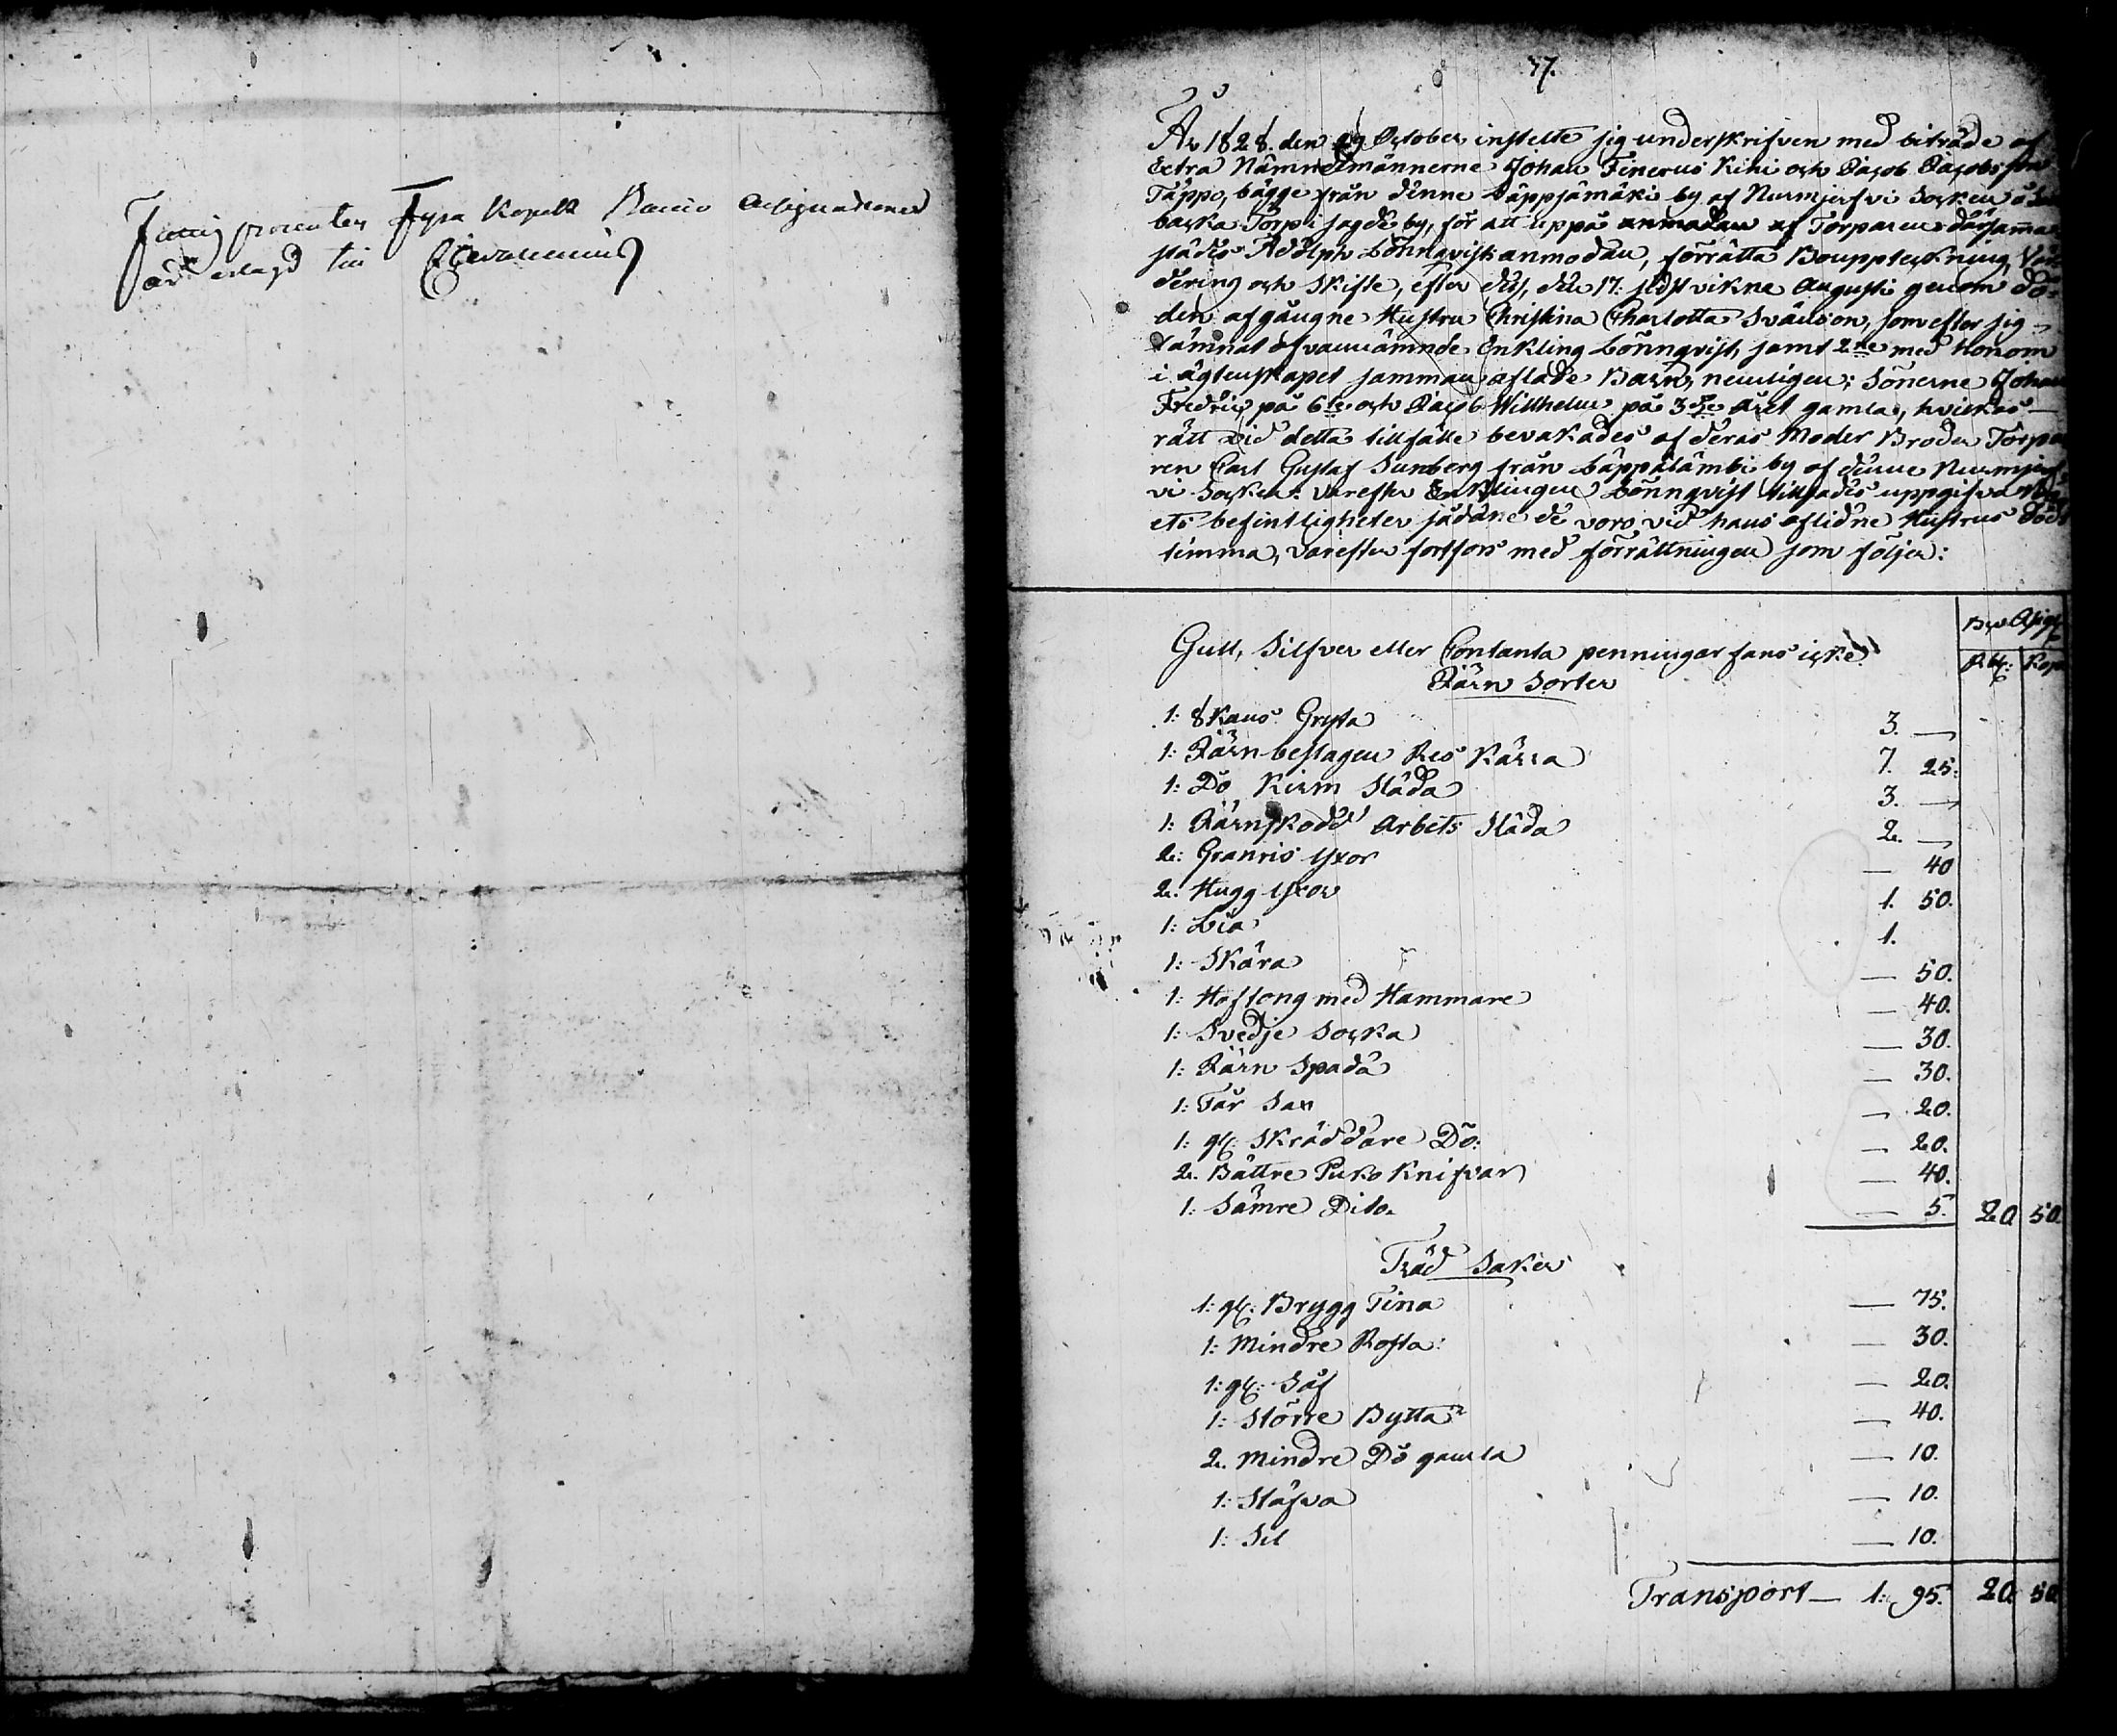 Fattig procenten Fyra Kopek Banco Assignationer
är erlagd til
77.
År 1828. den 29 October instelte jag underskrifven med biträde af
Extra Nämndemännerne Johan Finerus Kihi och Jacob Jacobsson
Tåppo, bägge från denne Låppjämäki by af Nurmjerfvi Socken å
backa Torp i sagde by, för att uppå anmodan af Torparen därsamma
städes Adolph Lönnqvist anmodan, förrätta Bouppteckning, Vär
dering och Skifte, efter dess, den 17: sidst vikne Augusti genom dö-
den afgångne Hustru Christina Charlotta Svänson, som efter sig
lämnat ofvannämnde Enkling Lönnqvist, samt 2ne med honom
i ägtenskapet samman aflade Barn, nemligen: Sönerne Johan
Fredric på 6te och Jacob Willhelm på 3dje året gamla, hvilkas
rätt vid detta tillfälle bevakades af deras Moder Broder Torpa
ren Carl Gustaf Sunberg från Låppälämbi by af denne Nurmjerf
vi Socken: varefter Enklingen Lönnqvist tillsades uppgifva Bo
ets befintligheter sådane de voro vid hans aflidne Hustrus döds
timma, varefter fortfors med förrättningen som följer:
Bco Assigt
Gull, Silfver eller Contanta penningar fans icke
Rbl: Kop
Järn Sorter
1: 8 Kans Gryta 3. —
1: Järn beslagen Res Kärra 7. 25.
1: Do Kirm Släda 3. —
1: Järnskodd Arbets Släda 2. —
2: Granris Yxor — 40
2. Hugg Yxor 1. 50.
1: Lia 1.
1: Skära — 50.
1: Hoftong med Hammare — 40.
1: Svedje Socka — 30.
1: Järn Spada — 30.
1: Får Sax — 20.
1: gl: Skräddare Do: — 20.
2. Bättre Puko Knifvar — 40.
1: Sämre Dito. — 5. 20 50.
Träd Saker
1: gl: Brygg Tina — 75.
1: Mindre Rosta: — 30.
1: gl: Såf — 20.
1: Större Bytta — 40.
2. Mindre Do gamla — 10.
1: Stäfva — 10.
1: Sil — 10.
Transport — 1: 95. 20 50